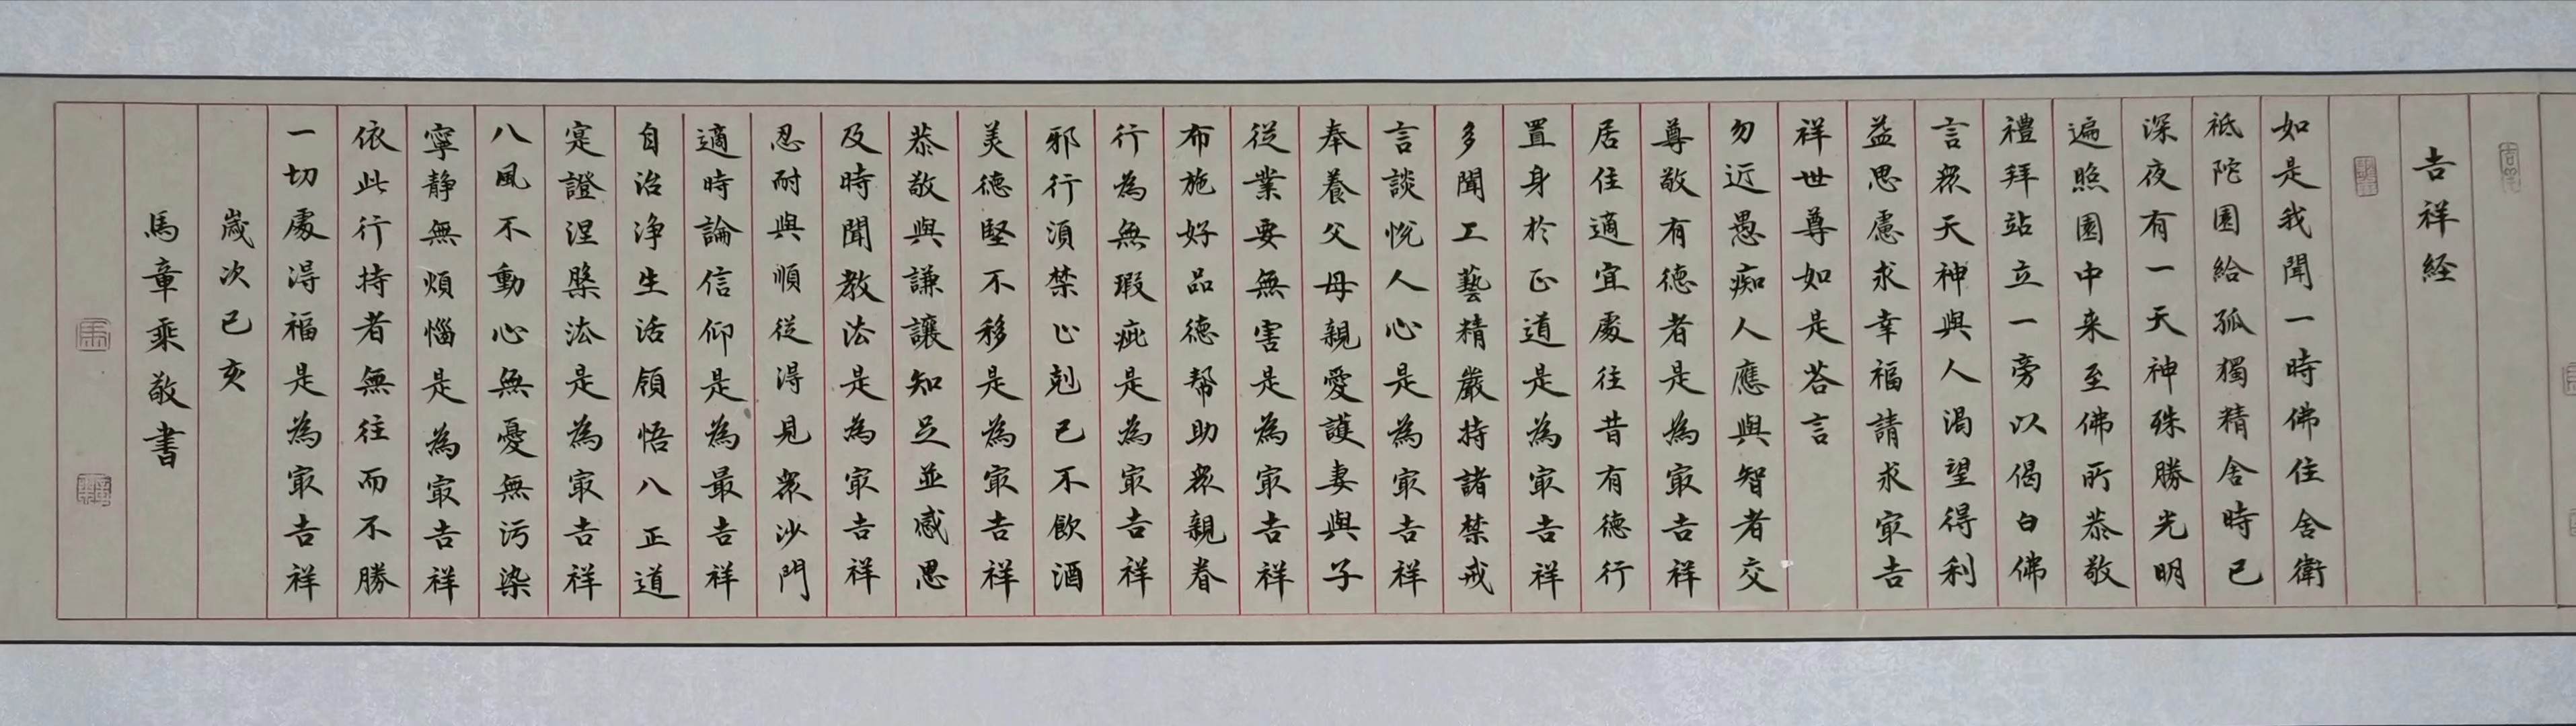 吉祥経
如是我聞一時佛住舍衛
祗陀園給孤獨精舍時已
深夜有一天神殊勝光明
遍照園中来至佛所恭敬
禮拜站立一旁以偈白佛
言眾天神與人渴望得利
益思慮求幸福請求冣吉
祥世尊如是荅言
勿近愚痴人應與智者交
尊敬有德者是為冣吉祥
居住適宜處往昔有德行
置身於正道是為冣吉祥
多聞工藝精嚴持諸禁戒
言談悅人心是為冣吉祥
奉養父母親愛護妻與子
從業要無害是為冣吉祥
布施好品德幫助眾親眷
行為無瑕疵是為冣吉祥
邪行須禁止剋己不飲酒
美德堅不移是為冣吉祥
恭敬與謙讓知足並感恩
及時聞教法是為冣吉祥
忍耐與順從得見眾沙門
適時論信仰是為最吉祥
自治净生活領悟八正道
寔證涅槃法是為冣吉祥
八風不動心無憂無污染
寧静無煩惱是為冣吉祥
依此行持者無往而不勝
一切處得福是為冣吉祥
歲次己亥
馬章乘敬書